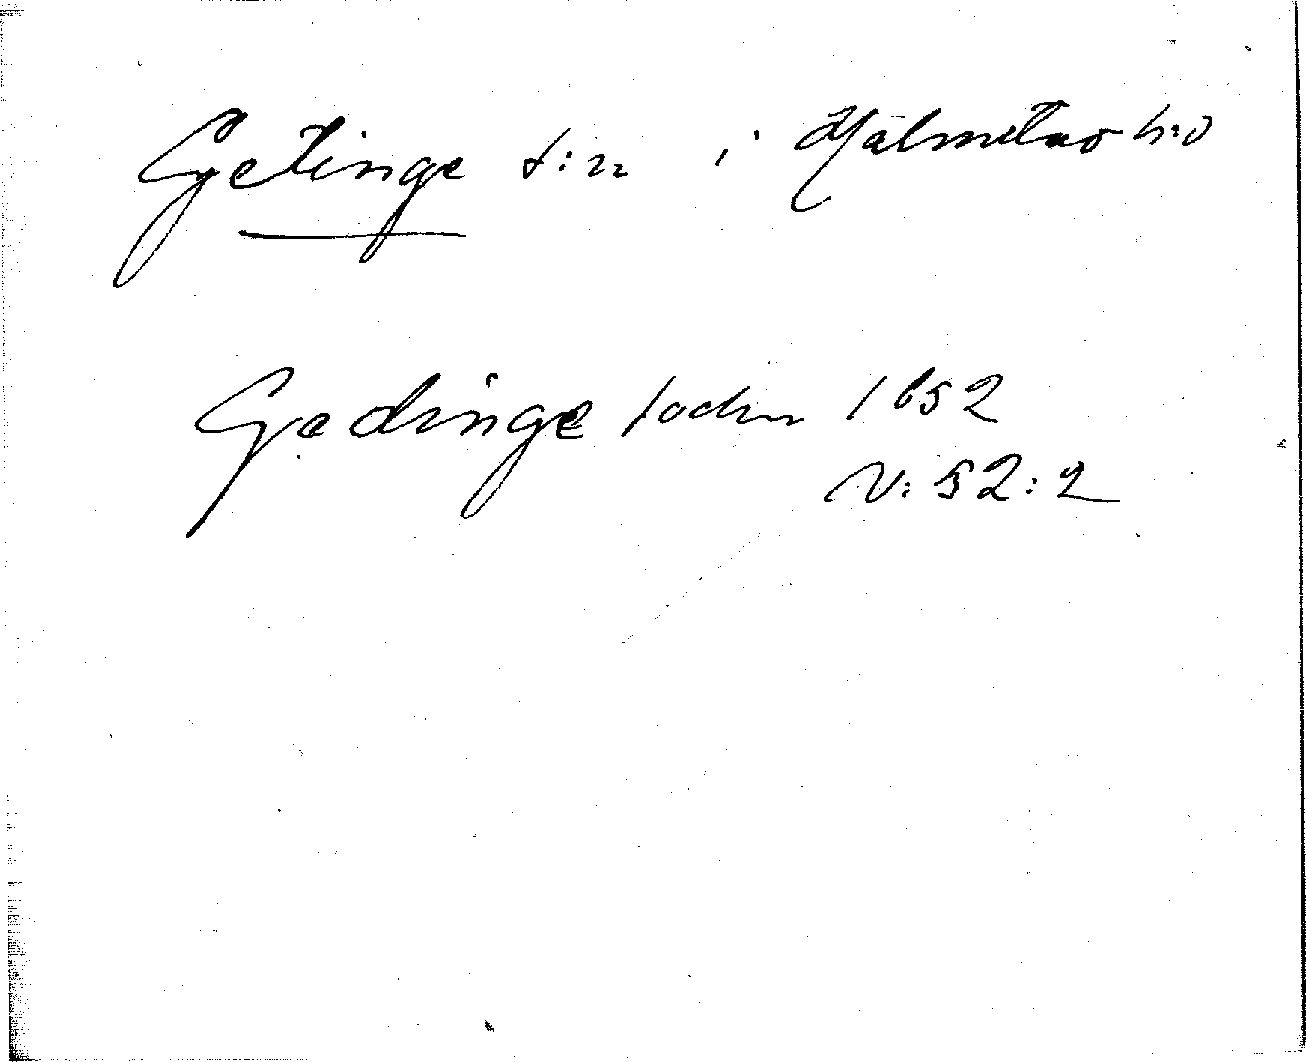 Getinge s:n i Halmstads h:d
Gedinge sochn 1652
N: 52:2